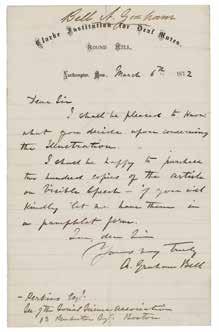 Bell A. Graham
Clarke Institution for Deaf Mutes,
Round Hill,
Northampton, Mass. March 6th 1872
Dear Sir
I shall be pleased to know
what you decide upon concerning
the illustration.
I shall be happy to purchase
two hundred copies of the article
on Visible Speech - if you will
kindly let me have them in
a pamphlet form.
I am, dear Sir
Yours very truly
A. Graham Bell
- Perkins Esq.
Sec of the Social Science Association
13 Pemberton Sq. Boston